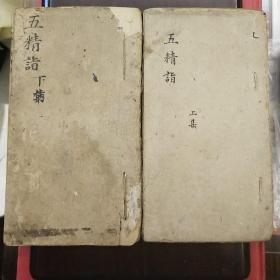 五精詣
上集
五精詣
下集